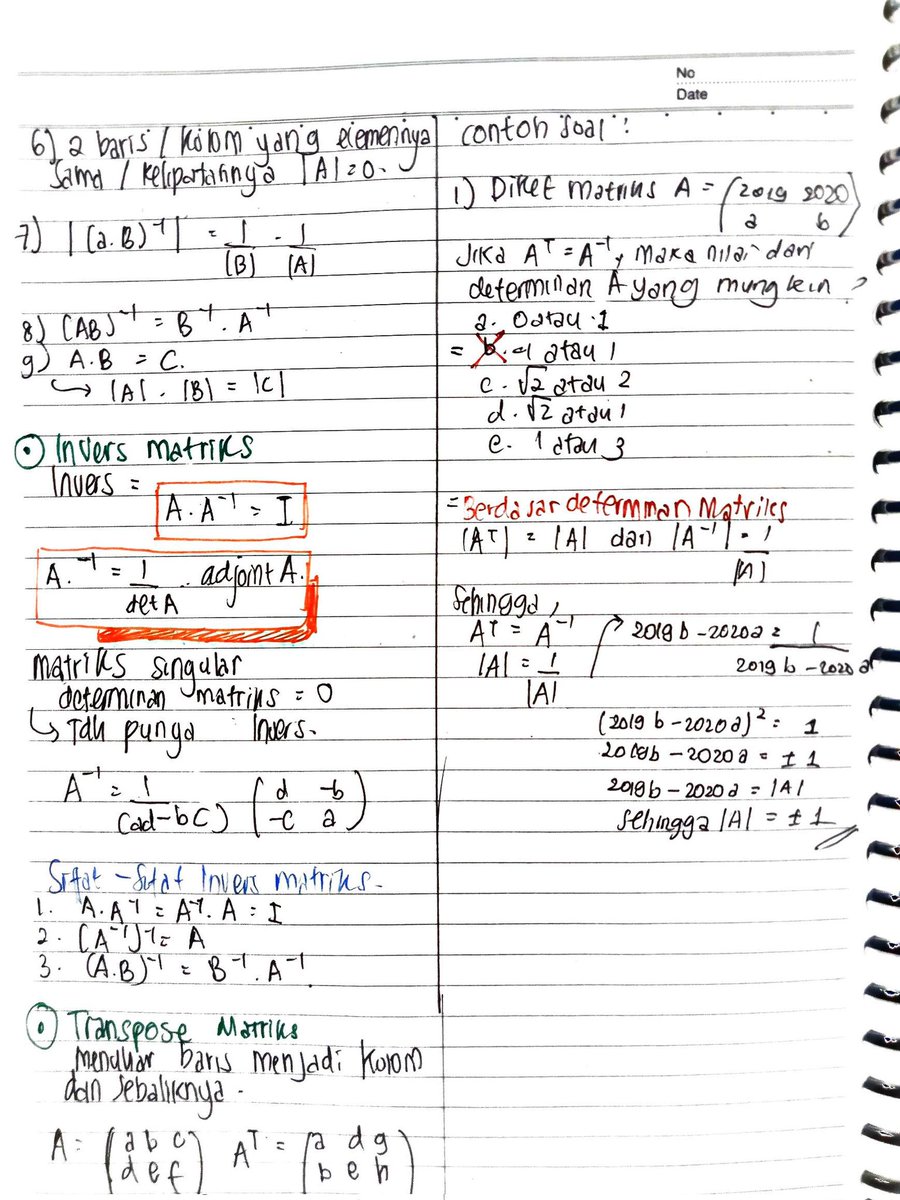 No
Date
6) 2 baris / kolom yang elemennya
sama / kelipatannya |A| = 0.
7) |(a.B)⁻¹| = 1/|B| . 1/|A|
8) (AB)⁻¹ = B⁻¹ . A⁻¹
9) A.B = C.
↳ |A| . |B| = |C|
⊙ Invers matriks
Invers =
A . A⁻¹ = I
A.⁻¹ = 1/det A . adjoint A.
Matriks singular
determinan matriks = 0
↳ Tdk punya Invers.
A⁻¹ = 1/(ad-bc) (d -b
-c a)
Sifat-Sifat Invers matriks.
1. A.A⁻¹ = A⁻¹.A = I
2. (A⁻¹)⁻¹ = A
3. (A.B)⁻¹ = B⁻¹ . A⁻¹
⊙ Transpose Matriks
Menukar baris menjadi kolom
dan sebaliknya.
A = (a b c
d e f)
Aᵀ = (a d g
b e h)
contoh soal :
1) Diket matriks A = (2019 2020
a b)
Jika Aᵀ = A⁻¹, maka nilai dari
determinan A yang mungkin ?
a. 0 atau 1
= b. -1 atau 1
c. √2 atau 2
d. √2 atau 1
e. 1 atau 3
= Berdasar determinan Matriks
|Aᵀ| = |A| dan |A⁻¹| = 1/|A|
Sehingga,
Aᵀ = A⁻¹
|A| = 1/|A|
2019 b - 2020 a = 1/2019 b - 2020 a
(2019 b - 2020 a)² = 1
2019 b - 2020 a = ± 1
2019 b - 2020 a = |A|
Sehingga |A| = ± 1